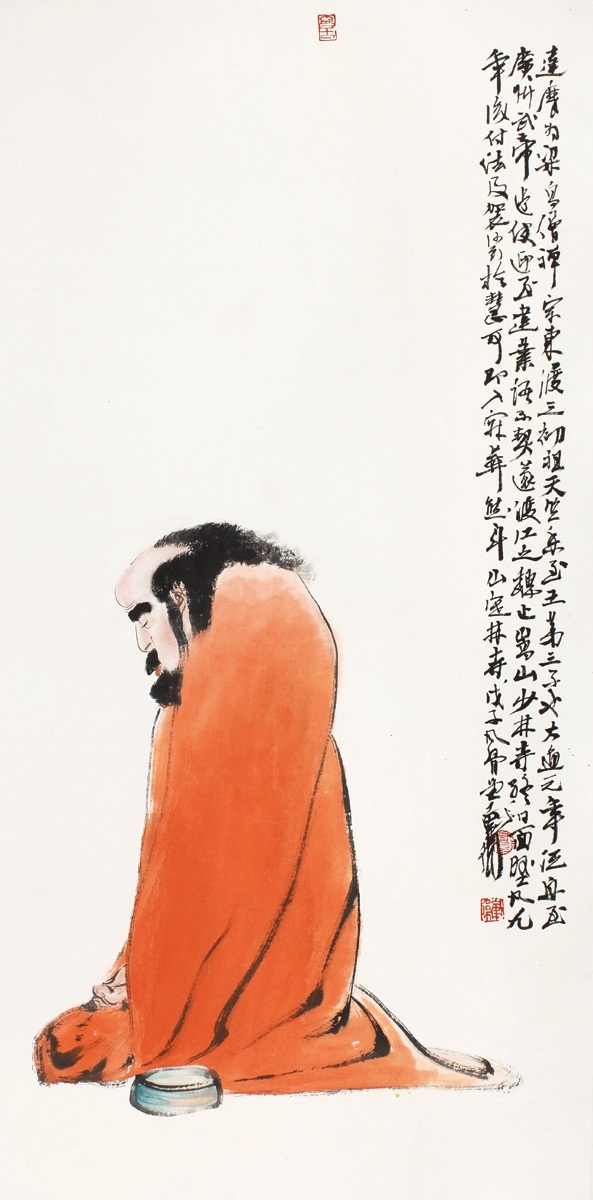 達摩為梁高僧禪宗東渡之初祖天竺香至王第三子也大通元年泛舟至
廣州武帝遣使迎至建業語不契遂渡江之魏止嵩山少林寺終日面壁凡九
年後付法及袈裟於慧可即入寂葬熊耳山定林寺戊子